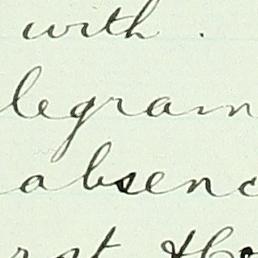 with.
legram
absenc